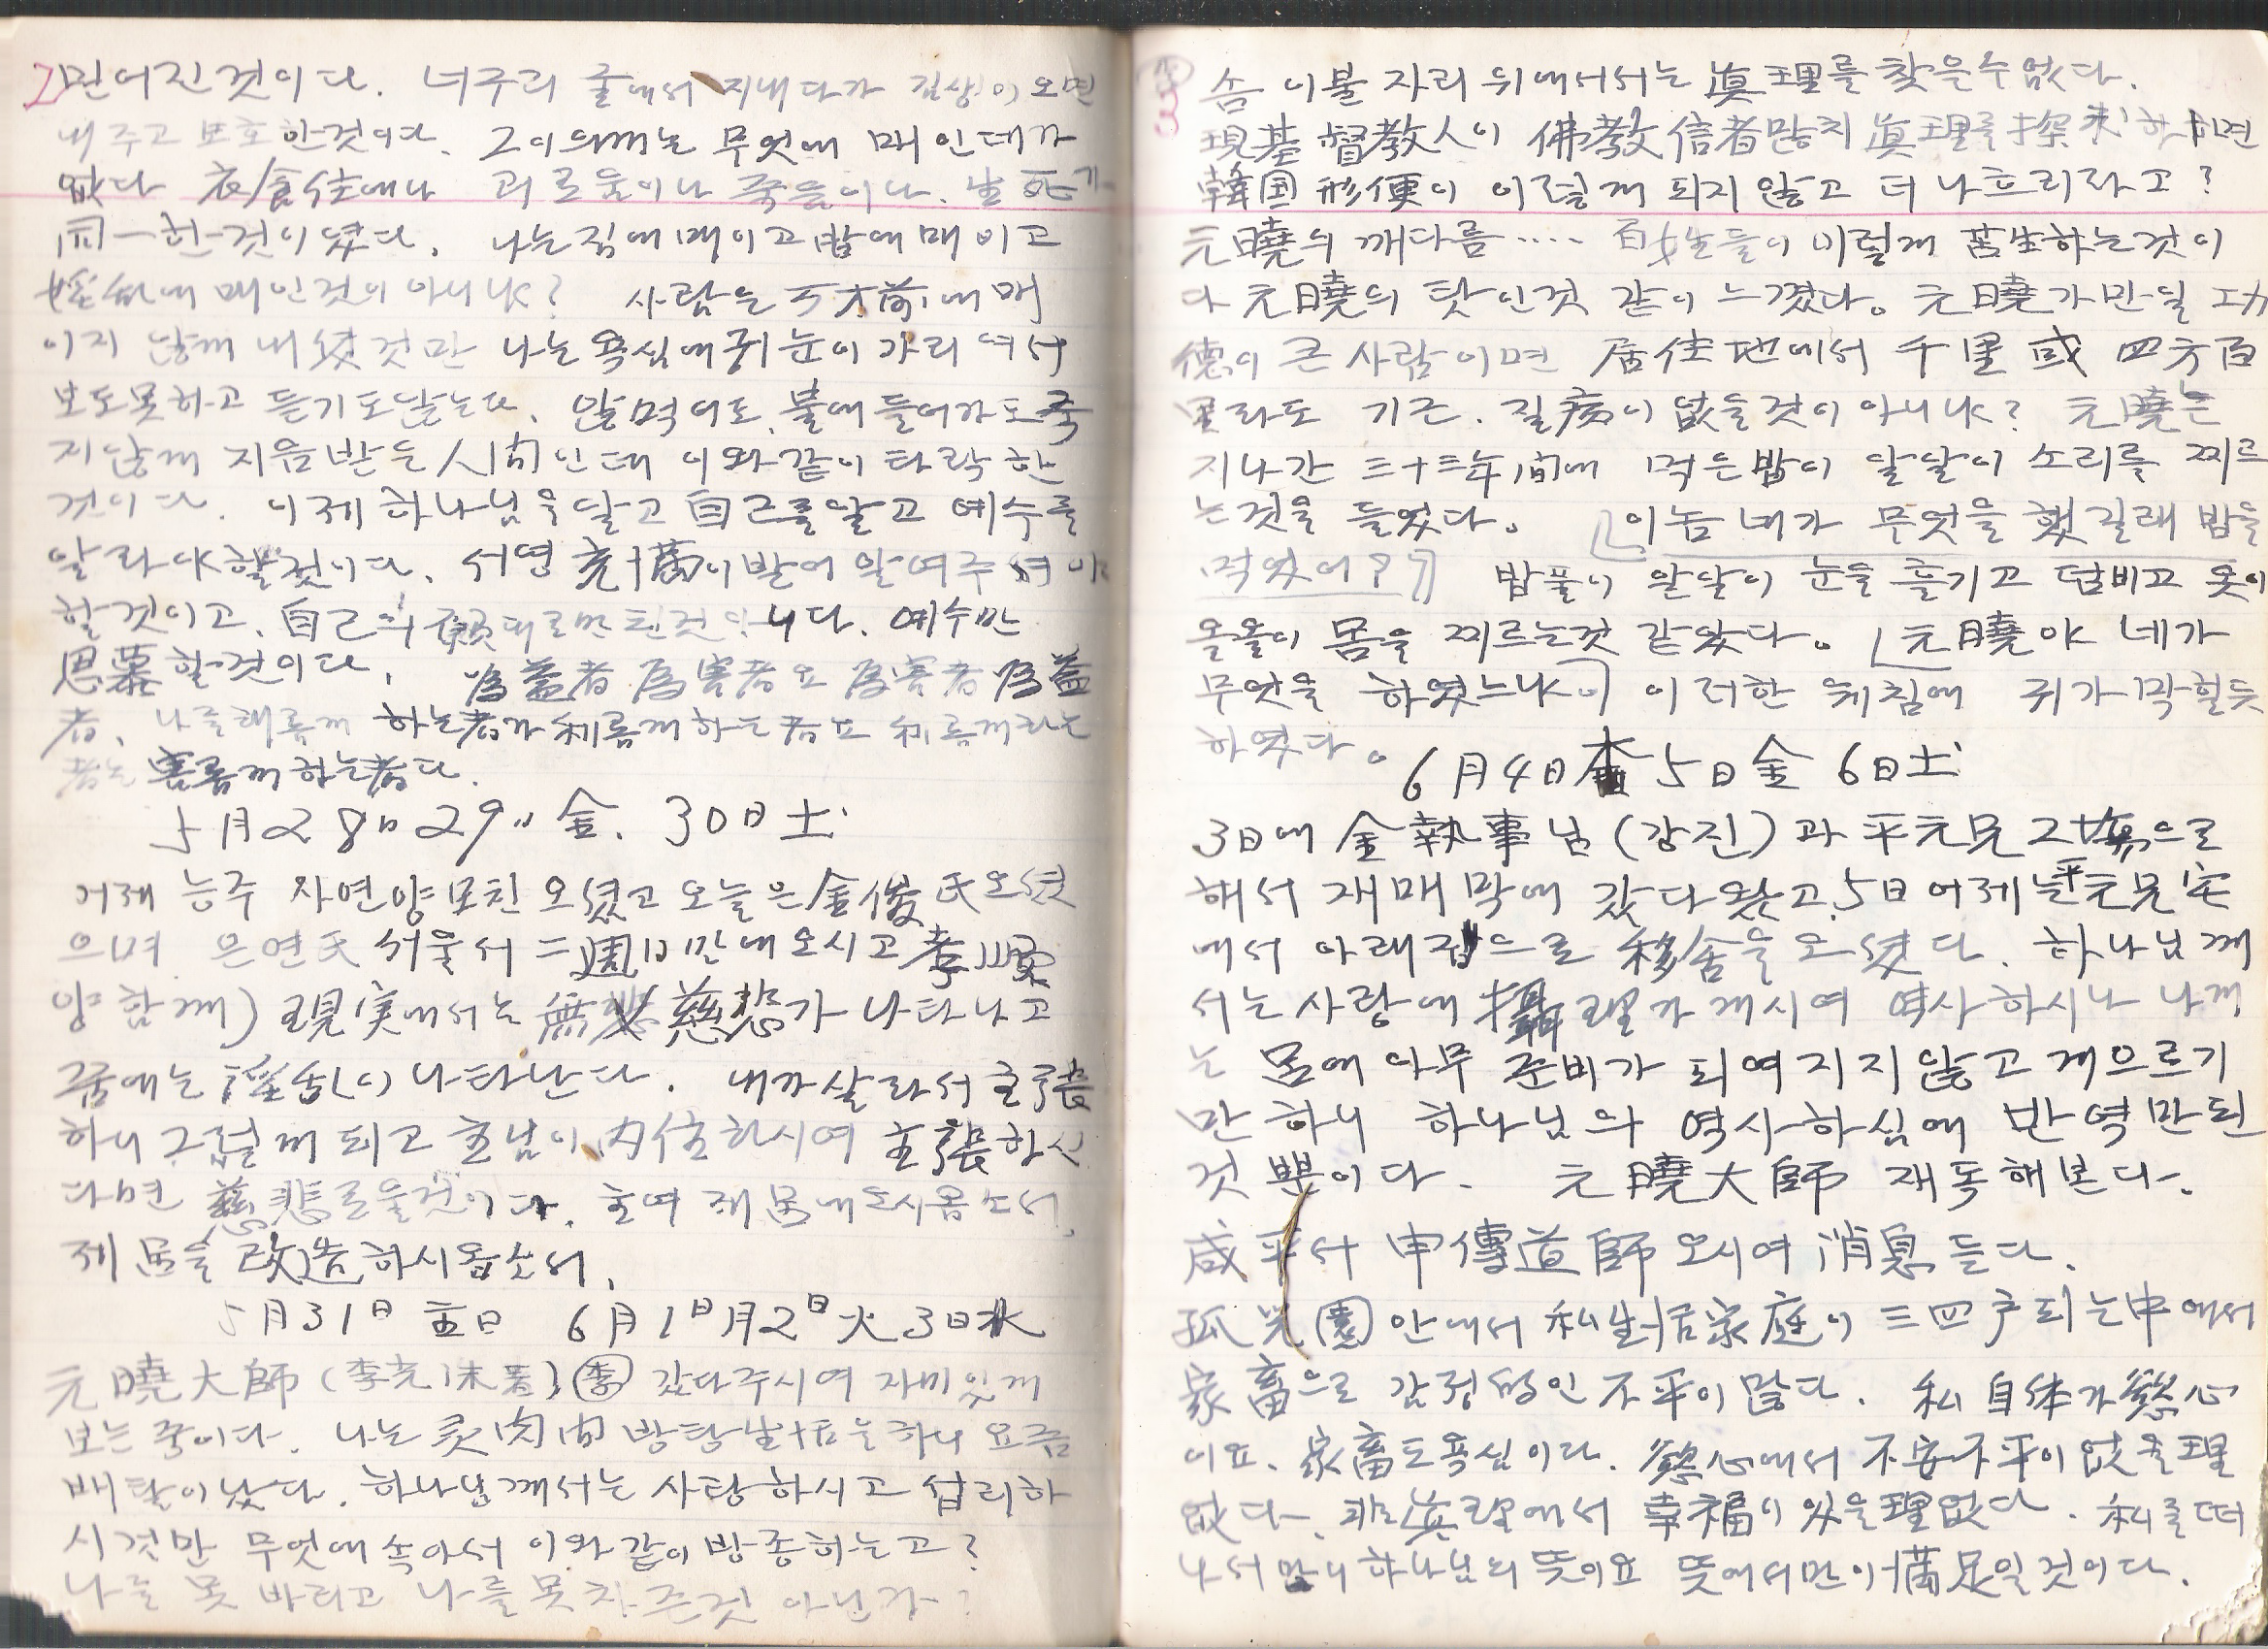 믿어진 것이다. 너구리 굴에서 지내다가 짐생이 오면
내주고 보호한것이다. 그이의께는 무엇에 매인데가
없다 衣食住에나 괴로움이나 죽음이나. 生死가
同一한것이였다. 나는집에매이고밥에매이고
婬乱에 매인것이 아니냐? 사람은 에매
이지 않게 내셨것만 나는욕심에귀눈이가리여서
보도못하고 듣기도 안먹어도 불에들어가도 죽
지않게 지음받은 人間인데 이와같이 타락한
것이다. 이제 하나님을알고 自己를알고 예수를
알라야할것이다. 서명 이받어 알여주셔야
할것이고. 自己의 願대로만된것 니다. 예수만
思慕할것이다. 為益者 為害者요 為害者 為益
者. 나를해롭게 하는者가 利롭게하는者요 利롭게하는
者는 害롭게하는者다.
5月28日 29〃金. 30日土
어제 능주 자연양모친 오셨고 오늘은金俊氏오셨
으며 은연氏 서울서 二週日만에오시고 孝順
양함께) 現実에서는 無 慈悲가 나타나고
꿈에는 淫乱이 나타난다. 내가살라서 主張
하니그렇게 되고 主님이 内住하시여 主張하신
다면 慈悲로울것이다. 主여 제몸에오시옵소서.
제몸을 改造하시옵소서.
5月31日 主日 6月1日月2日火3日水
元曉大師(李光洙著) 李 갔다주시여 자미있게
보는중이다. 나는 灵肉間 방탕生活을하니 요즘
배탈이났다. 하나님께서는 사랑하시고 섭리하
시것만 무엇에속아서 이와같이방종하는고?
나를 못 바리고 나를못차즌것 아닌가?
솜 이불 자리 위에서서는 眞理를 찾을수없다.
現基督教人이 佛教信者만치 眞理를探求하 면
韓国形便이 이렇게 되지않고 더나흐리라고?
元曉의 깨다름.... 百姓들이이렇게 苦生하는것이
다 元曉의 탓인것 같이 느꼈다。元曉가만일 功
德이 큰사람이면 居住地에서 千里 或 四方百
里라도 기근. 질病이 없을것이 아니냐? 元曉는
지나간 三十三年間에 먹은밥이 알알이 소리를 찌르
는것을 들었다。『이놈 네가 무엇을 했길래 밥을
먹었어?』 밥풀이 알알이 눈을 흘기고 덤비고 옷이
올올이 몸을 찌르는것 같았다。「元曉야 네가
무엇을 하였느냐」 이러한 웨침에 귀가막힐듯
하였다。 6月4日木5日金 6日土
3日에 金執事님(강진)과 平元兄 으로
해서 재매 막에 갔다왔고.5日어제는平元兄宅
에서 아래집으로 移舍을오셨다. 하나님께
서는사랑에 攝理가계시여 역사하시나 나게
는 몸에아무 준비가 되여지지않고게으르기
만하니 하나님의 역사하심에 반역만된
것뿐이다. 元曉大師 재독해본다.
咸平서 申傳道師 오시여 消息듣다.
孤児園안에서 私生活家庭이 三四戶되는中에서
家畜으로 감정的인 不平이많다. 私自体가慾心
이요. 家畜도욕심이다. 慾心에서 不安不平이없을理
없다. 非眞理에서 幸福이있을理없다. 私를떠
나서만이하나님의 뜻이요 뜻에서만이滿足일것이다.